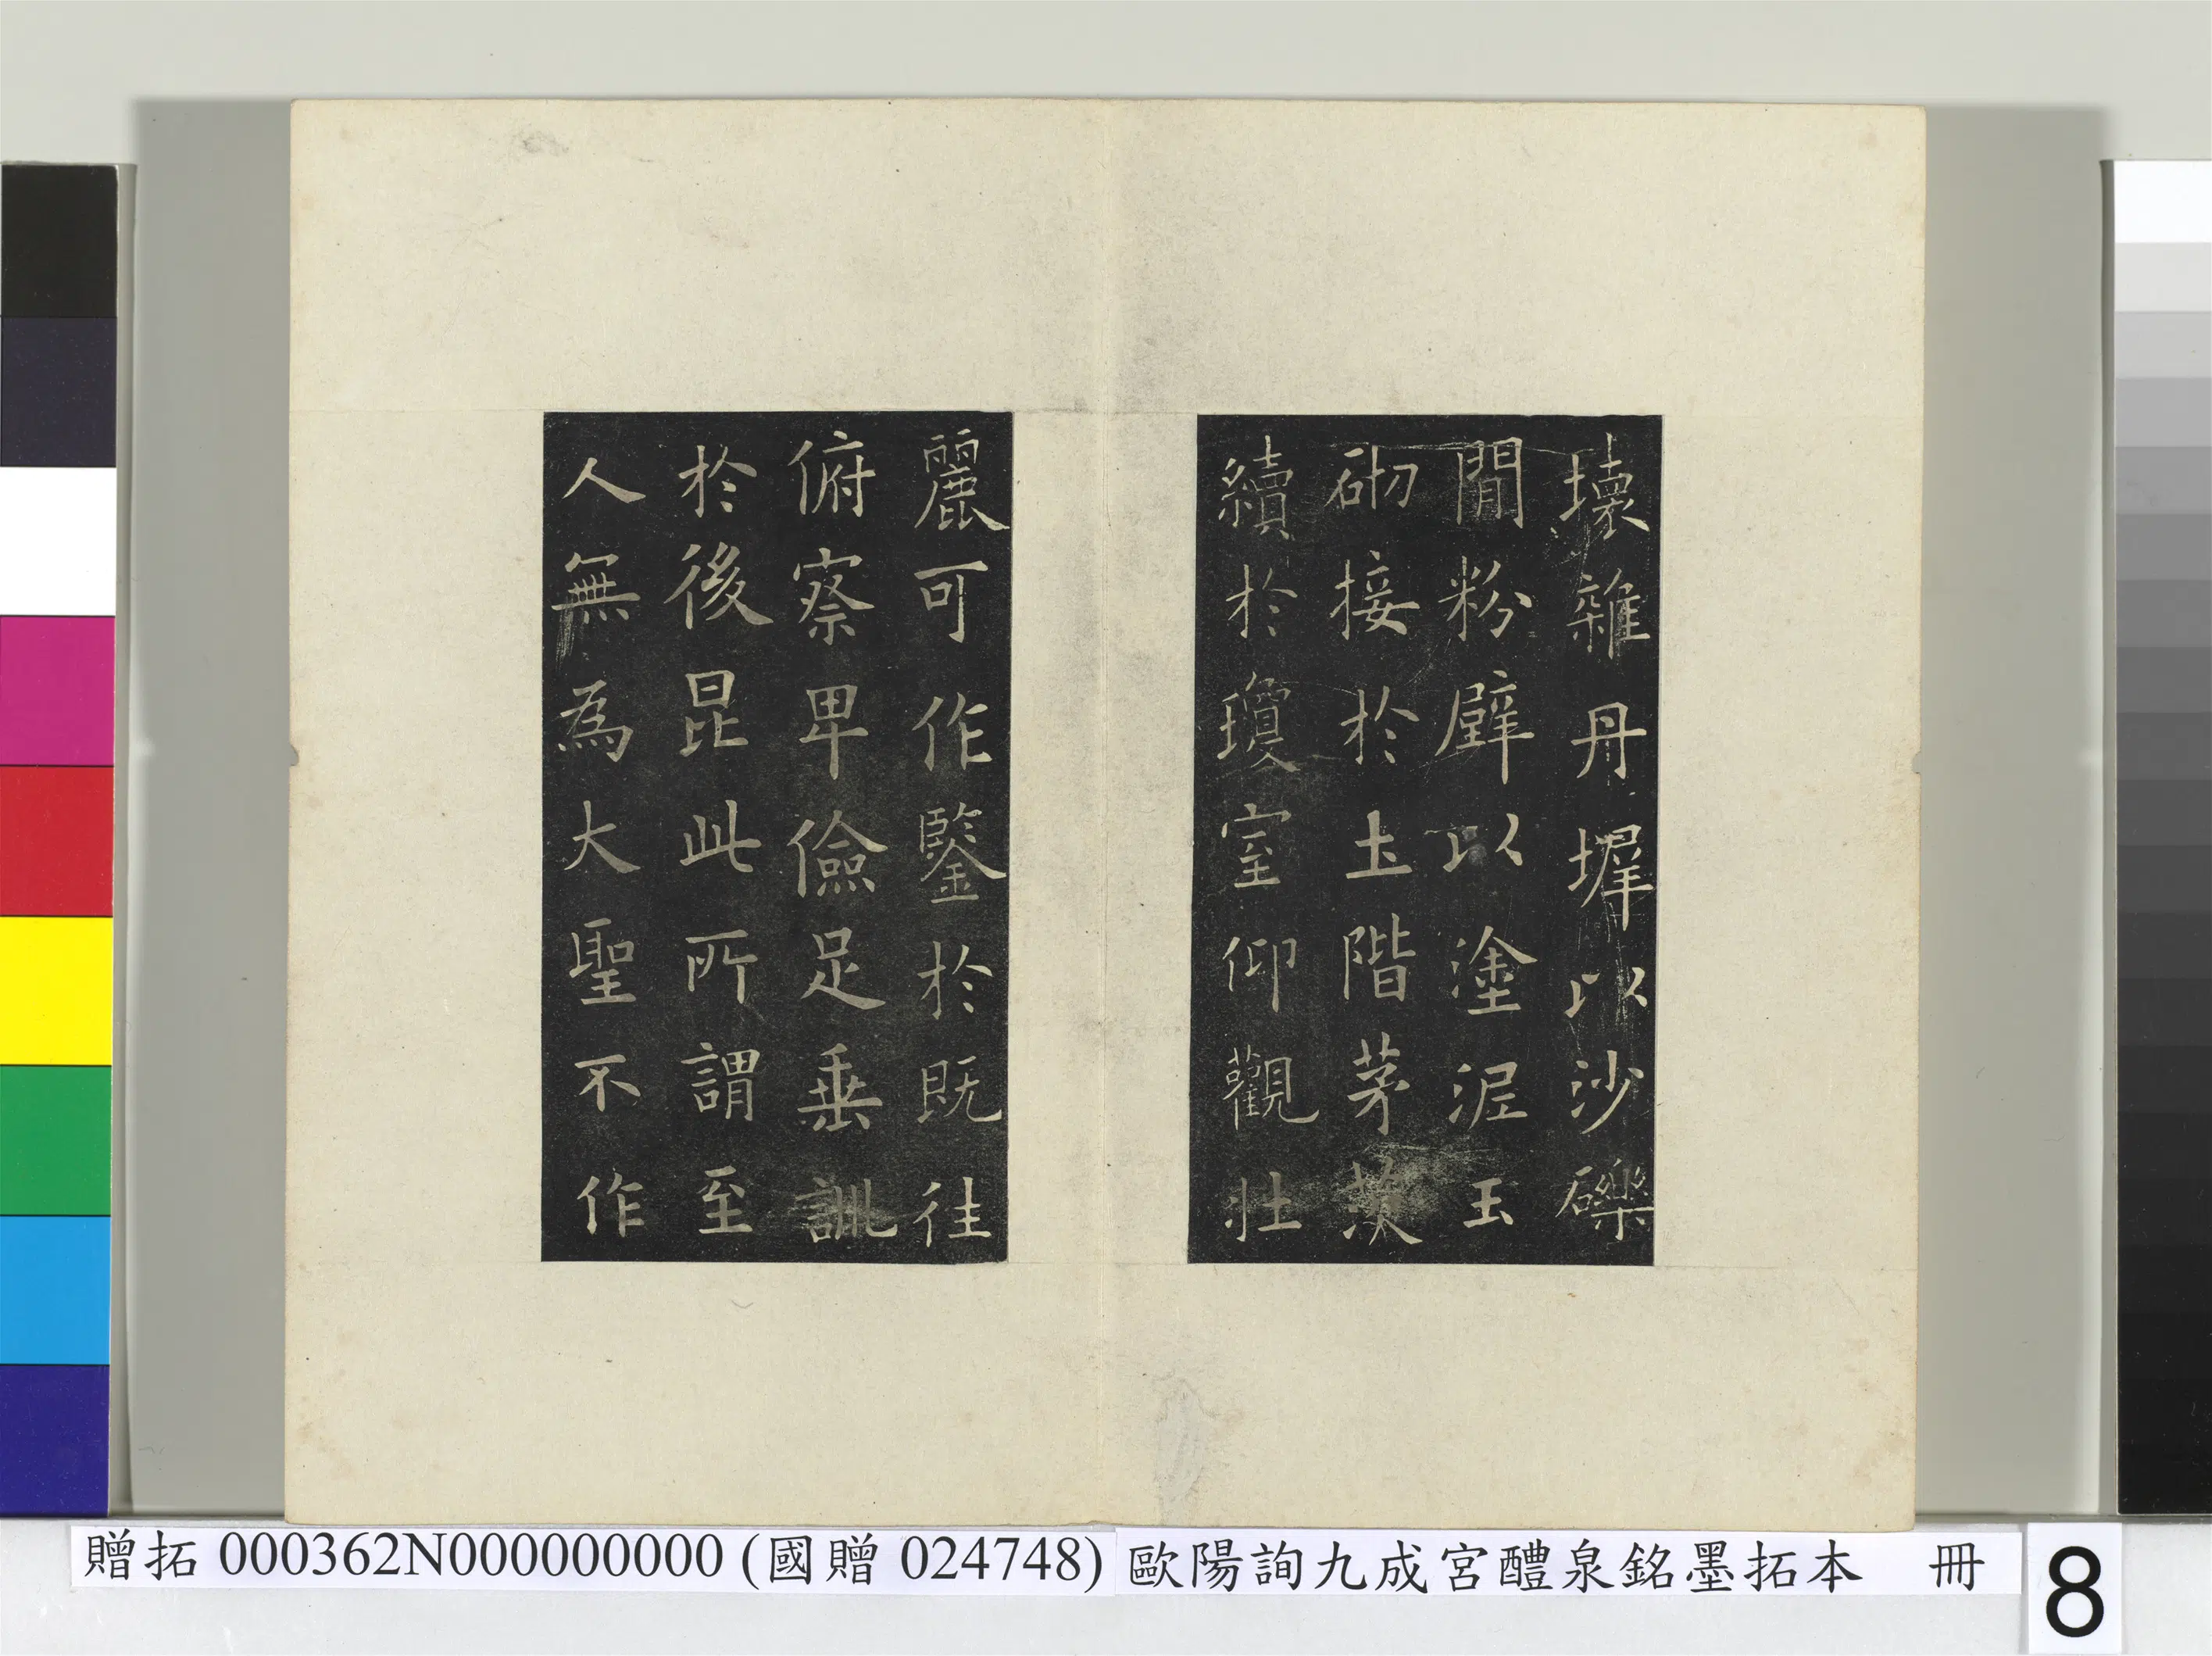 壞雜丹墀以沙礫
間粉壁以塗泥玉
砌接於土階茅茨
續於瓊室仰觀壯
麗可作鑒於既往
俯察卑儉足垂訓
於後昆此所謂至
人無為大聖不作
贈拓 000362N000000000 (國贈 024748) 歐陽詢九成宮醴泉銘墨拓本 冊
8